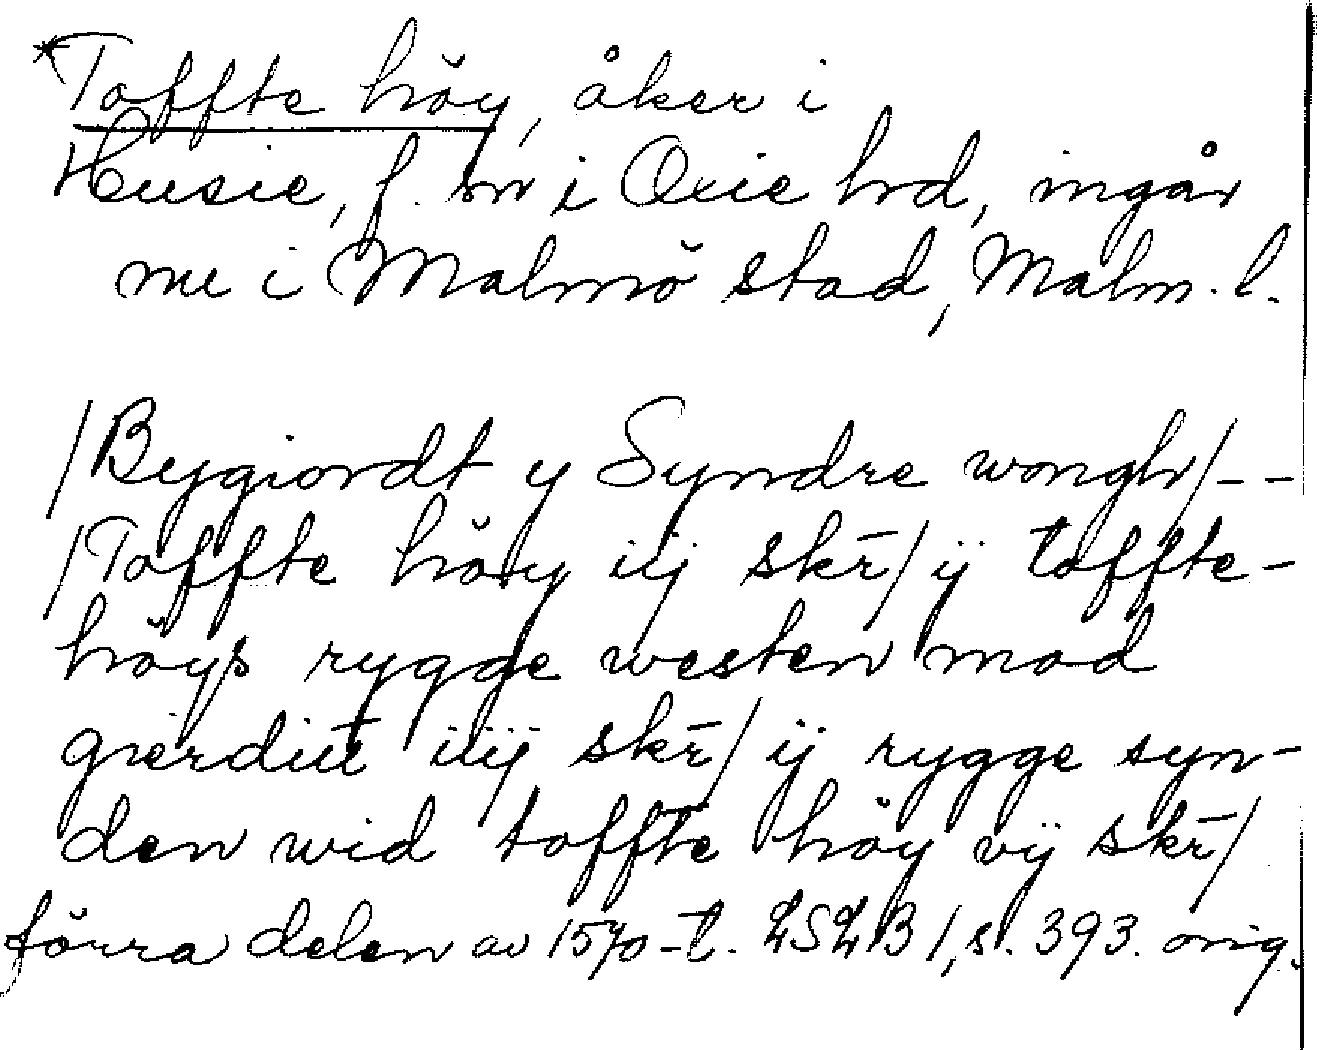 *Toffte höy, åker i
Husie, f. sn i Oxie hd, ingår
nu i Malmö stad, Malm. l.
/Bygiordt y Syndre wongh/--
/Toffte höy iij skr̄/ ij toffte-
höys rygge westen mod
gierdiit iiij skr̄/ ij rygge syn-
den wid toffte höy vij skr̄/
förra delen av 1570-t. LSLB 1, s. 393. orig.